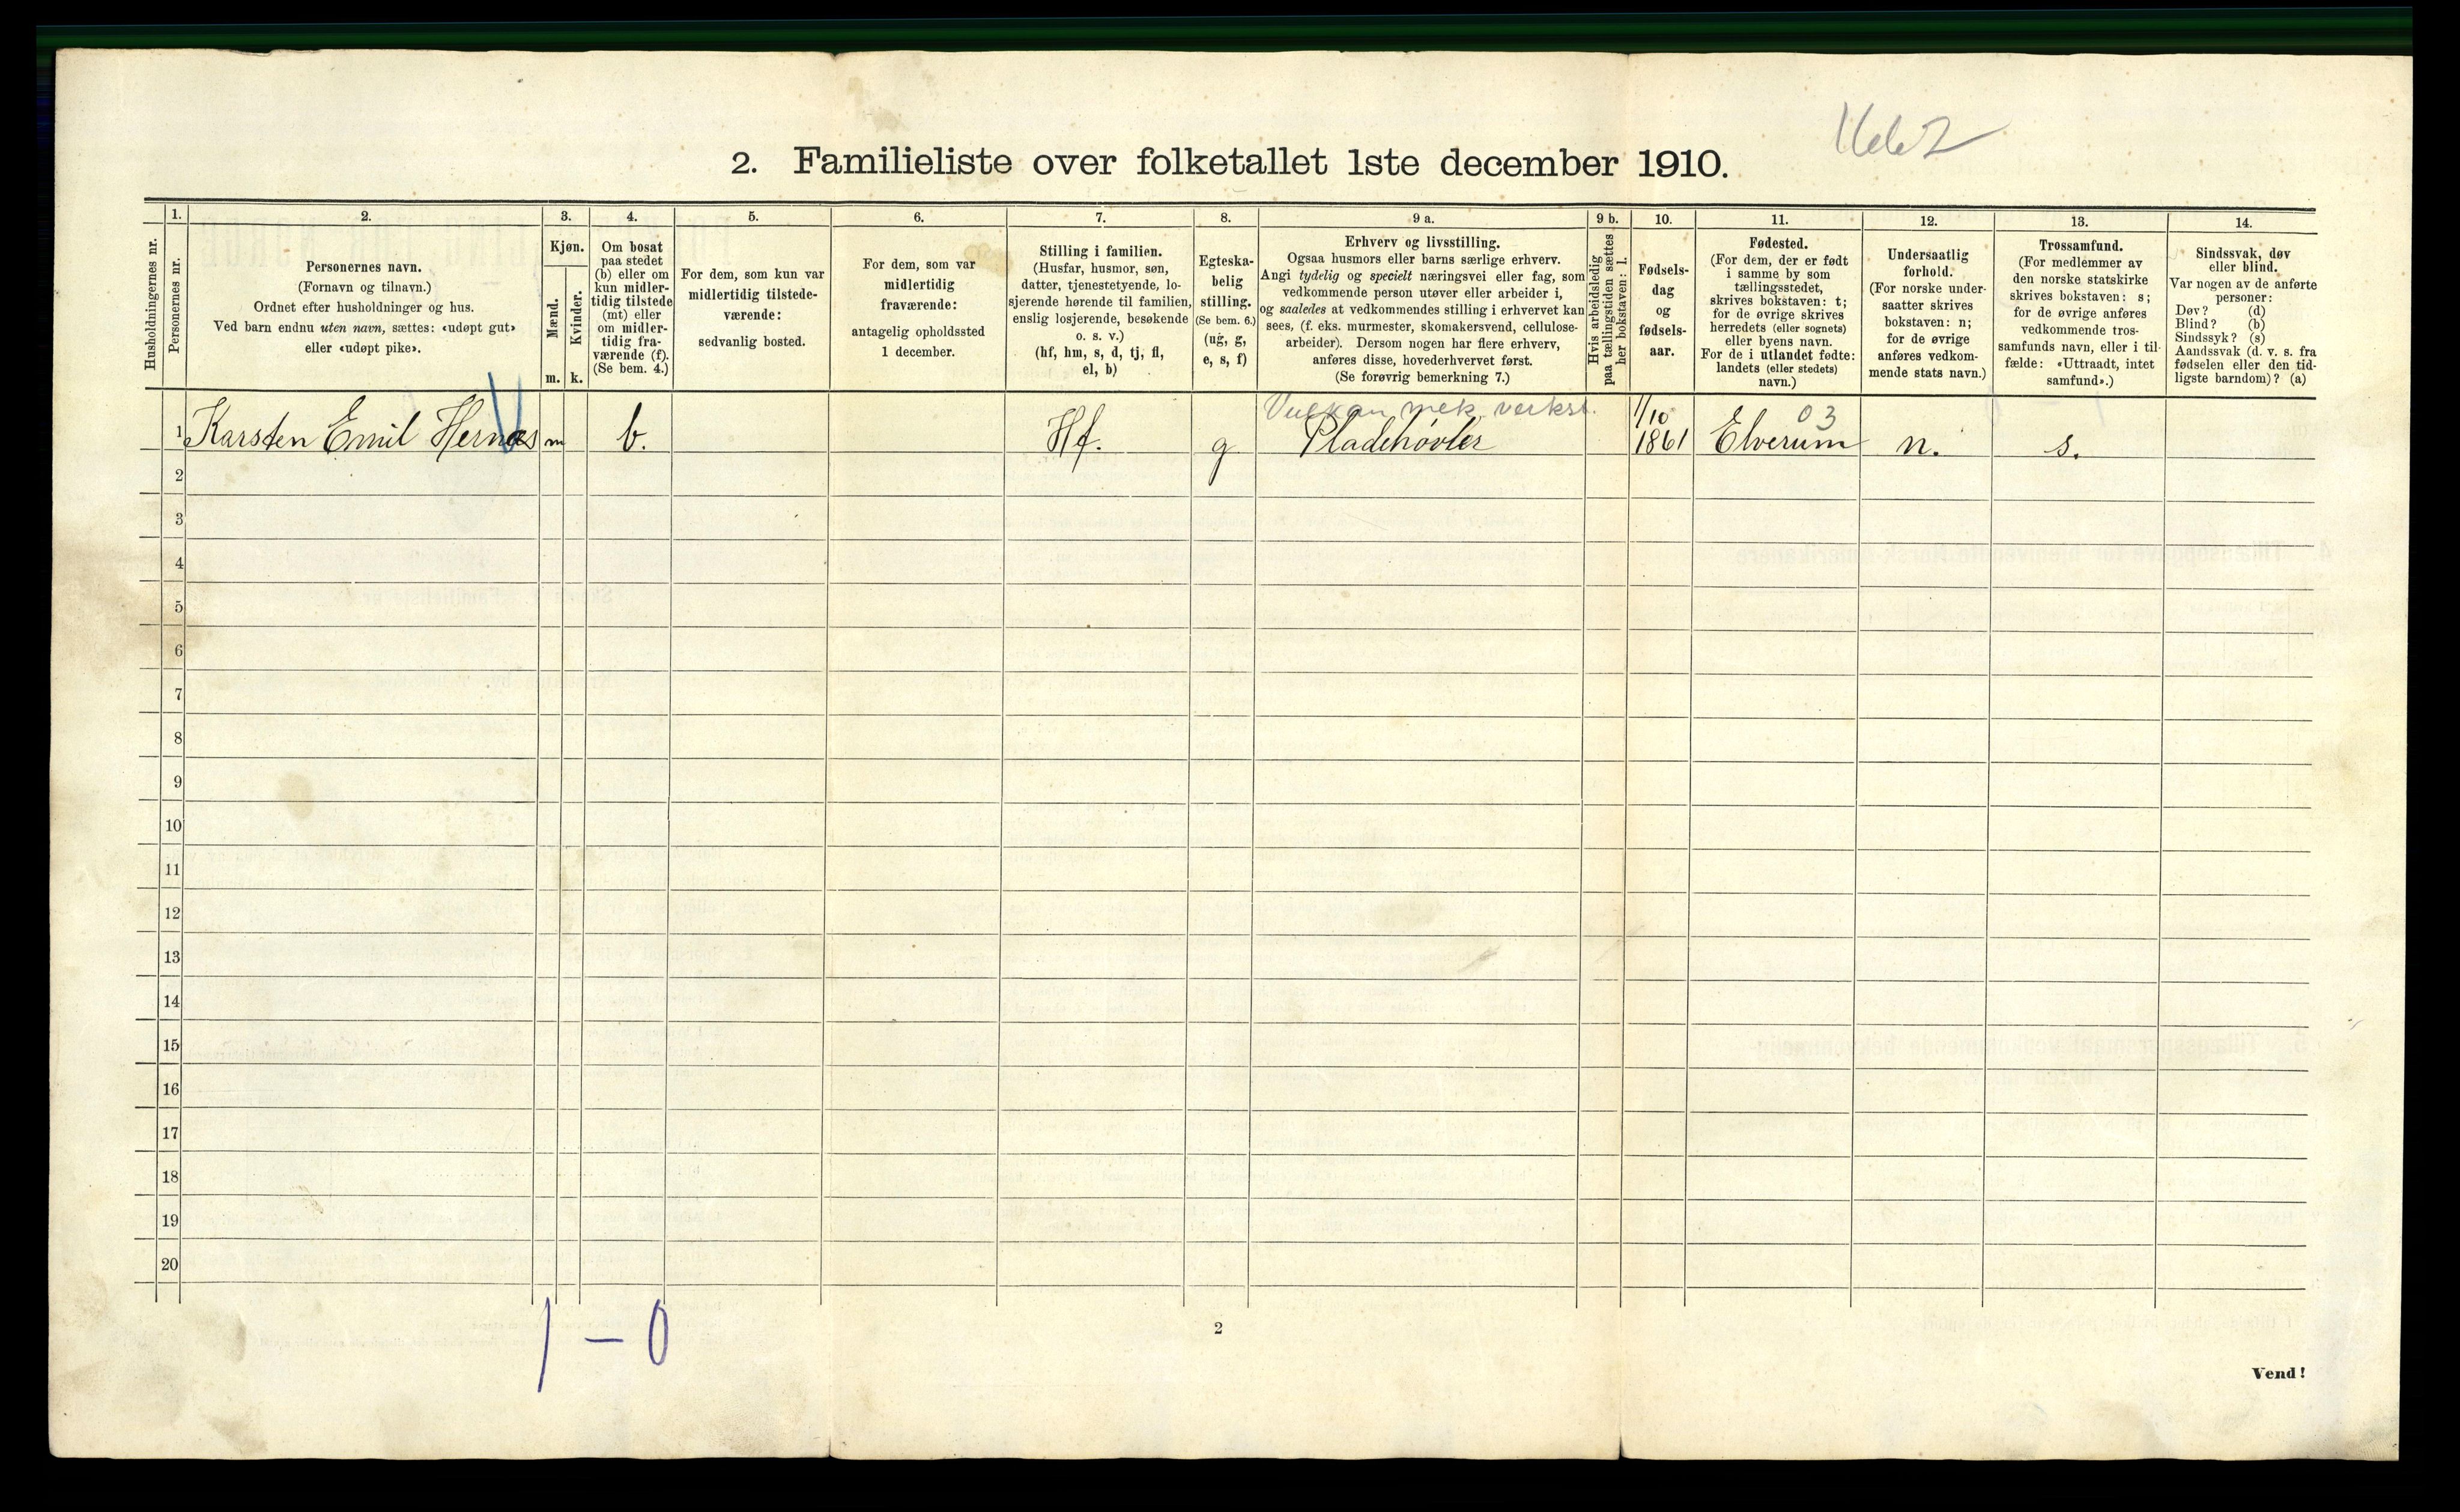 2. Familieliste over folketallet 1ste december 1910.
1.
2.
3.
4.
5.
6.
7.
8.
9 a.
9 b.
10.
11.
12.
13.
14.
Husholdningernes nr.
Personernes nr.
Personernes navn.
(Fornavn og tilnavn.)
Ordnet efter husholdninger og hus.
Ved barn endnu uten navn, sættes: «udøpt gut»
eller «udøpt pike».
Kjøn.
Mænd.
Kvinder.
m.
k.
Om bosat
paa stedet
(b) eller om
kun midler-
tidig tilstede
(mt) eller
om midler-
tidig fra-
værende (f).
(Se bem. 4.)
For dem, som kun var
midlertidig tilstede-
værende:
sedvanlig bosted.
For dem, som var
midlertidig
fraværende:
antagelig opholdssted
1 december.
Stilling i familien.
(Husfar, husmor, søn,
datter, tjenestetyende, lo-
sjerende hørende til familien,
enslig losjerende, besøkende
o. s. v.)
(hf, hm, s, d, tj, fl,
el, b)
Egteska-
belig
stilling.
(Se bem. 6.)
(ug, g,
e, s, f)
Erhverv og livsstilling.
Ogsaa husmors eller barns særlige erhverv.
Angi tydelig og specielt næringsvei eller fag, som
vedkommende person utøver eller arbeider i,
og saaledes at vedkommendes stilling i erhvervet kan
sees, (f. eks. murmester, skomakersvend, cellulose-
arbeider). Dersom nogen har flere erhverv,
anføres disse, hovederhvervet først.
(Se forøvrig bemerkning 7.)
Hvis arbeidsledig
paa tællingstiden sættes
her bokstaven: l.
Fødsels-
dag
og
fødsels-
aar.
Fødested.
(For dem, der er født
i samme by som
tællingsstedet,
skrives bokstaven: t;
for de øvrige skrives
herredets (eller sognets)
eller byens navn.
For de i utlandet fødte:
landets (eller stedets)
navn.)
Undersaatlig
forhold.
(For norske under-
saatter skrives
bokstaven: n;
for de øvrige
anføres vedkom-
mende stats navn.)
Trossamfund.
(For medlemmer av
den norske statskirke
skrives bokstaven: s;
for de øvrige anføres
vedkommende tros-
samfunds navn, eller i til-
fælde: «Uttraadt, intet
samfund».)
Sindssvak, døv
eller blind.
Var nogen av de anførte
personer:
Døv? (d)
Blind? (b)
Sindssyk? (s)
Aandssvak (d. v. s. fra
fødselen eller den tid-
ligste barndom)? (a)
Vulkan mek. verkst.
1/10
03
1 Karsten Emil Hernæs m b. Hf. g Pladehøvler 1861 Elverum n. s.
2
3
4
5
6
7
8
9
10
11
12
13
14
15
16
17
18
19
20
1 — 0
2
Vend!